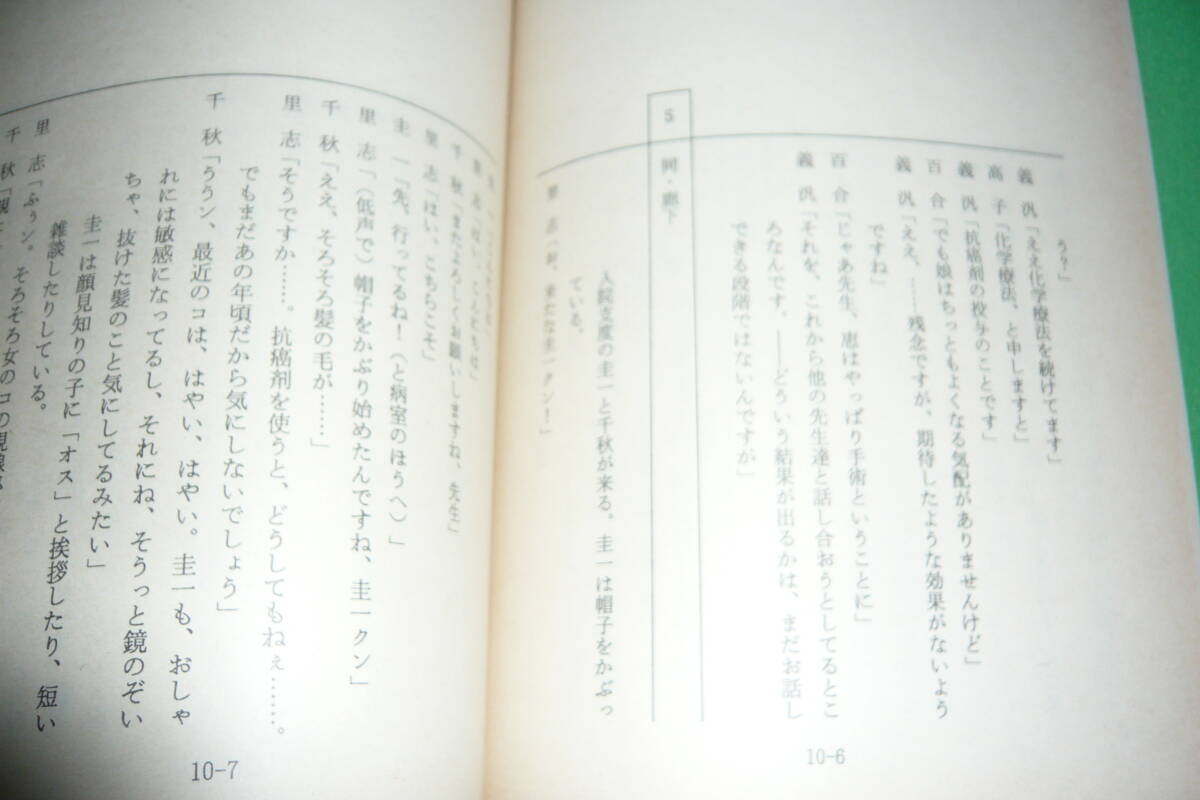 う？」
義　汎「ええ化学療法を続けてます」
高　子「化学療法、と申しますと」
義　汎「抗癌剤の投与のことです」
百　合「でも娘はちっともよくなる気配がありませんけど」
義　汎「ええ、……残念ですが、期待したような効果がないよう
ですね」
百　合「じゃあ先生、恵はやっぱり手術ということに」
義　汎「それを、これから他の先生達と話し合おうとしてるとこ
ろなんです。――どういう結果が出るかは、まだお話し
できる段階ではないんですが」
5　同・廊下
入院支度の圭一と千秋が来る。圭一は帽子をかぶっ
ている。
里　志「お、来たな圭一クン！」
10-6
千　秋「またよろしくお願いしますね、先生」
里　志「はい、こちらこそ」
圭　一「先、行ってるね！（と病室のほうへ）」
里　志「（低声で）帽子をかぶり始めたんですね、圭一クン」
千　秋「ええ、そろそろ髪の毛が……」
里　志「そうですか……。抗癌剤を使うと、どうしてもねぇ……。
でもまだあの年頃だから気にしないでしょう」
千　秋「ううン、最近のコは、はやい、はやい。圭一も、おしゃ
れには敏感になってるし、それにね、そうっと鏡のぞい
ちゃ、抜けた髪のこと気にしてるみたい」
圭一は顔見知りの子に「オス」と挨拶したり、短い
雑談したりしている。
里　志「ふぅン。そろそろ女のコの視線が
千　秋「
10-7